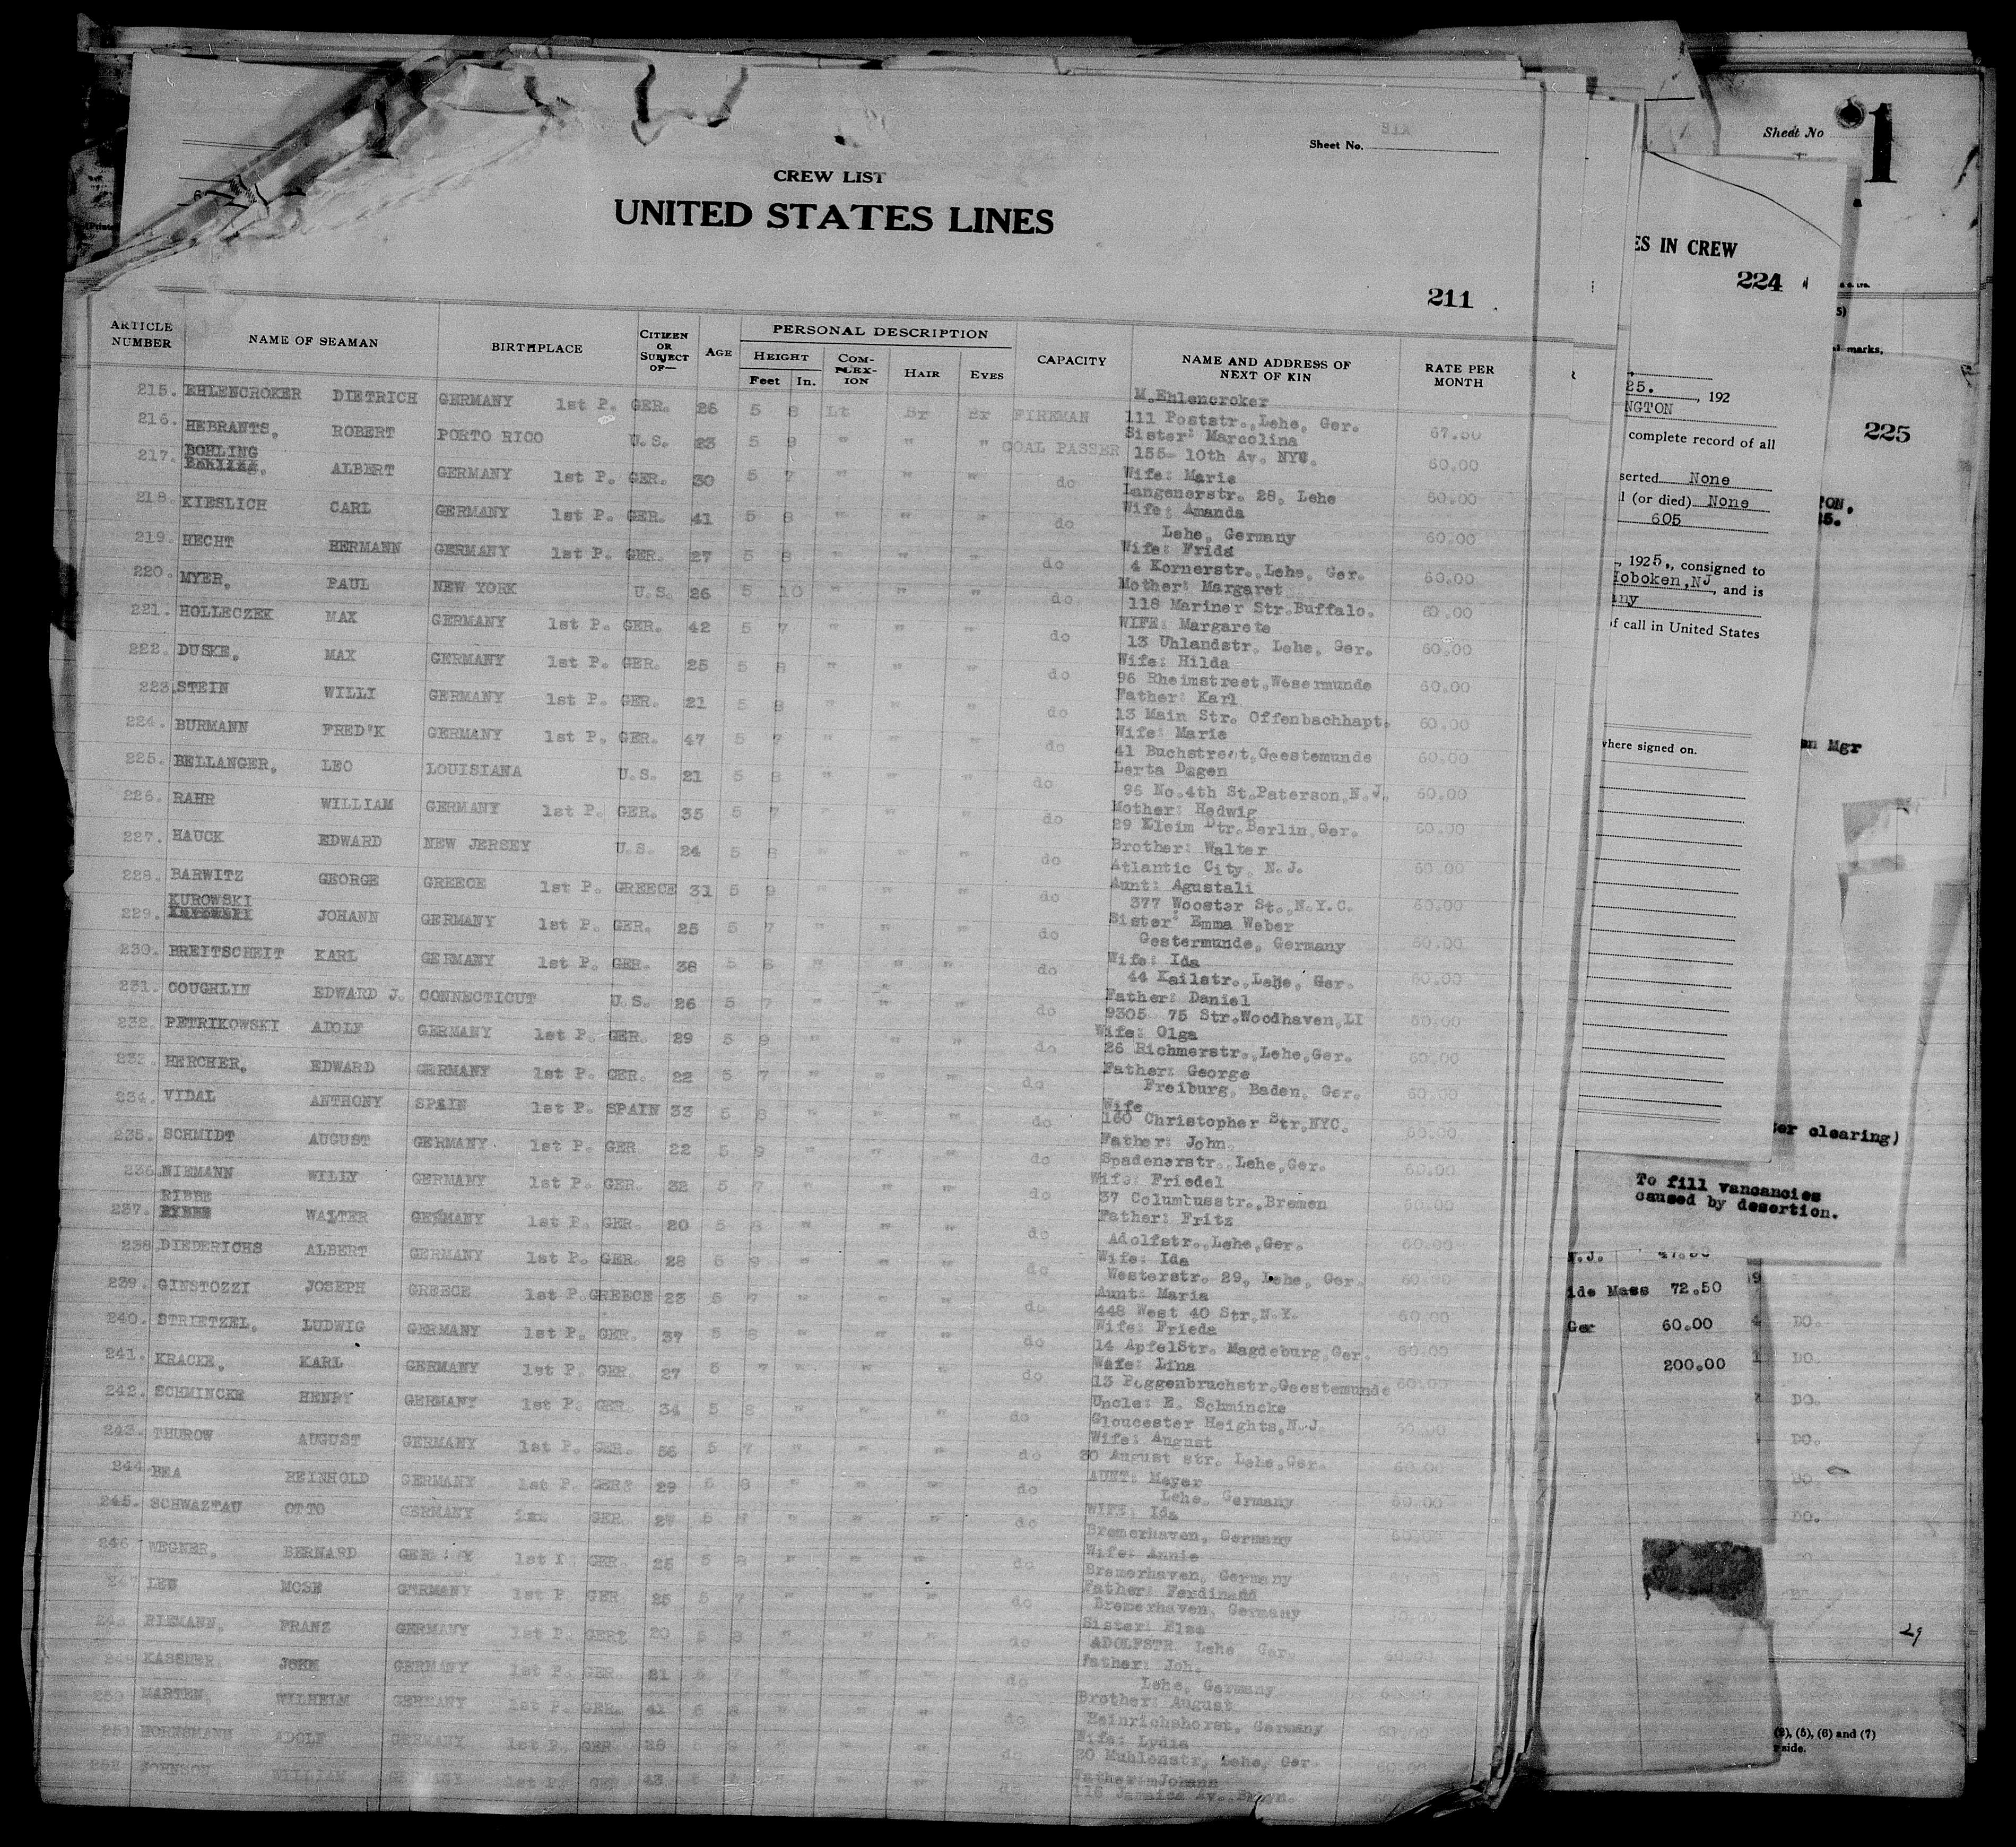 SIX
Sheet No.
CREW LIST
UNITED STATES LINES
211
ARTICLE NUMBER NAME OF SEAMAN BIRTHPLACE CITIZEN OR SUBJECT OF— AGE PERSONAL DESCRIPTION HEIGHT Feet In. COMPLEXION HAIR EYES CAPACITY NAME AND ADDRESS OF NEXT OF KIN RATE PER MONTH
215. EHLENCROKER DIETRICH GERMANY 1st P. GER. 26 5 8 Lt Br Br FIREMAN M.Ehlencroker
111 Poststr., Lehe, Ger. 67.50
216. HEBRANTS, ROBERT PORTO RICO U.S. 23 5 8 " " " COAL PASSER Sister: Marcolina
155- 10th Av. NYC. 60.00
BOHLING
217. ALBERT GERMANY 1st P. GER. 30 5 7 " " " do Wife: Marie
Langenerstr. 28, Lehe 60.00
218. KIESLICH CARL GERMANY 1st P. GER. 41 5 8 " " " do Wife: Amanda
Lehe, Germany 60.00
219. HECHT HERMANN GERMANY 1st P. GER. 27 5 8 " " " do Wife: Frida
4 Kornerstr., Lehe, Ger. 60.00
220. MYER, PAUL NEW YORK U.S. 26 5 10 " " " do Mother: Margaret
118 Mariner Str.Buffalo. 60.00
221. HOLLECZEK MAX GERMANY 1st P. GER. 42 5 7 " " " do WIFE: Margarete
13 Uhlandstr. Lehe, Ger. 60.00
222. DUSKE, MAX GERMANY 1st P. GER. 25 5 8 " " " do Wife: Hilda
96 Rheimstreet,Wesermunde 60.00
223. STEIN WILLI GERMANY 1st P. GER. 21 5 8 " " " do Father: Karl
13 Main Str. Offenbachhapt. 60.00
224. BURMANN FRED"K GERMANY 1st P. GER. 47 5 7 " " " do Wife: Marie
41 Buchstreet,Geestemunde 60.00
225. BELLANGER, LEO LOUISIANA U.S. 21 5 8 " " " do Lerta Dagen
96 No.4th St.Paterson,N.J. 60.00
226. RAHR WILLIAM GERMANY 1st P. GER. 35 5 7 " " " do Mother: Hedwig
29 Kleim Dtr.Berlin,Ger. 60.00
227. HAUCK EDWARD NEW JERSEY U.S. 24 5 8 " " " do Brother: Walter
Atlantic City, N.J. 60.00
228. BARWITZ GEORGE GREECE 1st P. GREECE 31 5 9 " " " do Aunt: Agustali
377 Wooster St.,N.Y.C. 60.00
KUROWSKI
229. JOHANN GERMANY 1st P. GER. 25 5 7 " " " do Sister: Emma Weber
Gestermunde, Germany 60.00
230. BREITSCHEIT KARL GERMANY 1st P. GER. 38 5 8 " " " do Wife: Ida
44 Kailstr.,Lehe, Ger. 60.00
231. COUGHLIN EDWARD J. CONNECTICUT U.S. 26 5 7 " " " do Father: Daniel
9305- 75 Str.Woodhaven,LI 60.00
232. PETRIKOWSKI ADOLF GERMANY 1st P. GER. 29 5 9 " " " do Wife: Olga
26 Richmerstr.,Lehe,Ger. 60.00
233. HERCHER, EDWARD GERMANY 1st P. GER. 22 5 7 " " " do Father: George
Freiburg, Baden, Ger. 60.00
234. VIDAL ANTHONY SPAIN 1st P. SPAIN 33 5 8 " " " do Wife
160 Christopher Str,NYC. 60.00
235. SCHMIDT AUGUST GERMANY 1st P. GER. 22 5 9 " " " do Father: John.
Spadenerstr.,Lehe,Ger. 60.00
236. NIEMANN WILLY GERMANY 1st P. GER. 32 5 7 " " " do Wife: Friedel
37 Columbusstr.,Bremen 60.00
RIBBE
237. WALTER GERMANY 1st P. GER. 20 5 8 " " " do Father: Fritz
Adolfstr.,Lehe,Ger. 60.00
238. DIEDERICHS ALBERT GERMANY 1st P. GER. 28 5 9 " " " do Wife: Ida
Westerstr. 29, Lehe, Ger. 60.00
239. GINSTOZZI JOSEPH GREECE 1st P. GREECE 23 5 7 " " " do Aunt: Maria
448 West 40 Str.N.Y. 60.00
240. STRIETZEL, LUDWIG GERMANY 1st P. GER. 37 5 8 " " " do Wife: Frieda
14 ApfelStr. Magdeburg,Ger. 60.00
241. KRACKE, KARL GERMANY 1st P. GER. 27 5 7 " " " do Wife: Lina
13 Poggenbruchstr.Geestemunde 60.00
242. SCHMINCKE HENRY GERMANY 1st P. GER. 34 5 8 " " " do Uncle: E. Schmincke
Gloucester Heights,N.J. 60.00
243. THUROW AUGUST GERMANY 1st P. GER. 56 5 7 " " " do Wife: August
30 August str. Lehe,Ger. 60.00
244. BEA REINHOLD GERMANY 1st P. GER? 29 5 8 " " " do AUNT: Meyer
Lehe, Germany 60.00
245. SCHWAZTAU OTTO GERMANY GER. 27 5 7 " " " do WIFE: Ida
Bremerhaven, Germany 60.00
246 WEGNER, BERNARD GERMANY 1st P. GER. 25 5 8 " " " do Wife: Annie
Bremerhaven, Germany 60.00
247 LEU MOSE GERMANY 1st P. GER. 25 5 7 " " " do Father: Ferdinand
Bremerhaven, Germany 60.00
248 RIEMANN, FRANZ GERMANY 1st P. GER? 20 5 8 " " " do Sister: Else
ADOLFSTR. Lehe, Ger. 60.00
249 KASSNER, JOHN GERMANY 1st P. GER. 21 5 7 " " " do Father: Joh.
Lehe, Germany 60.00
250 MARTEN, WILHELM GERMANY 1st P. GER. 41 5 8 " " " do Brother: August
Heinrichshorst, Germany 60.00
251 HORNSMANN ADOLF GERMANY 1st P. GER 28 5 " " do Wife: Lydia
20 Muhlenstr, Lehe, Ger. 60.00
252 JOHNSON, WILLIAM GERMANY 1st P. GER. 43 5 do Father:mJohann
116 Jamaica Av. Bklyn. 60
Sheet No 1
ES IN CREW
224
25. , 192
NGTON
complete record of all
serted None
l (or died) None
605
, 1925., consigned to
Hoboken,NJ, and is
any
of call in United States
where signed on.
225
marks,
TON,
25.
an Mgr
ter clearing)
To fill vancancies
caused by desertion.
N.J. 47.50
ide Mass 72.50
Ger 60.00
200.00
DO.
DO.
DO.
DO.
DO.
DO.
29
(2), (5), (6) and (7)
side.